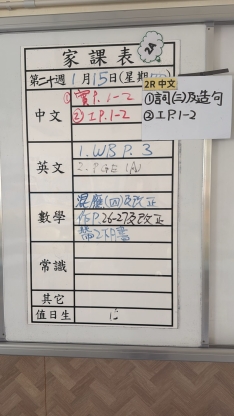 家課表
第二十週 1月15日(星期四)
中文
①寳P.1-2
②工P.1-2
2R 中文
①詞(三)及造句
②工P.1-2
英文
1. WB P. 3
數學
混應(四)及改正
作P.26-27及改正
帶2下書
常識
其它
值日生
15